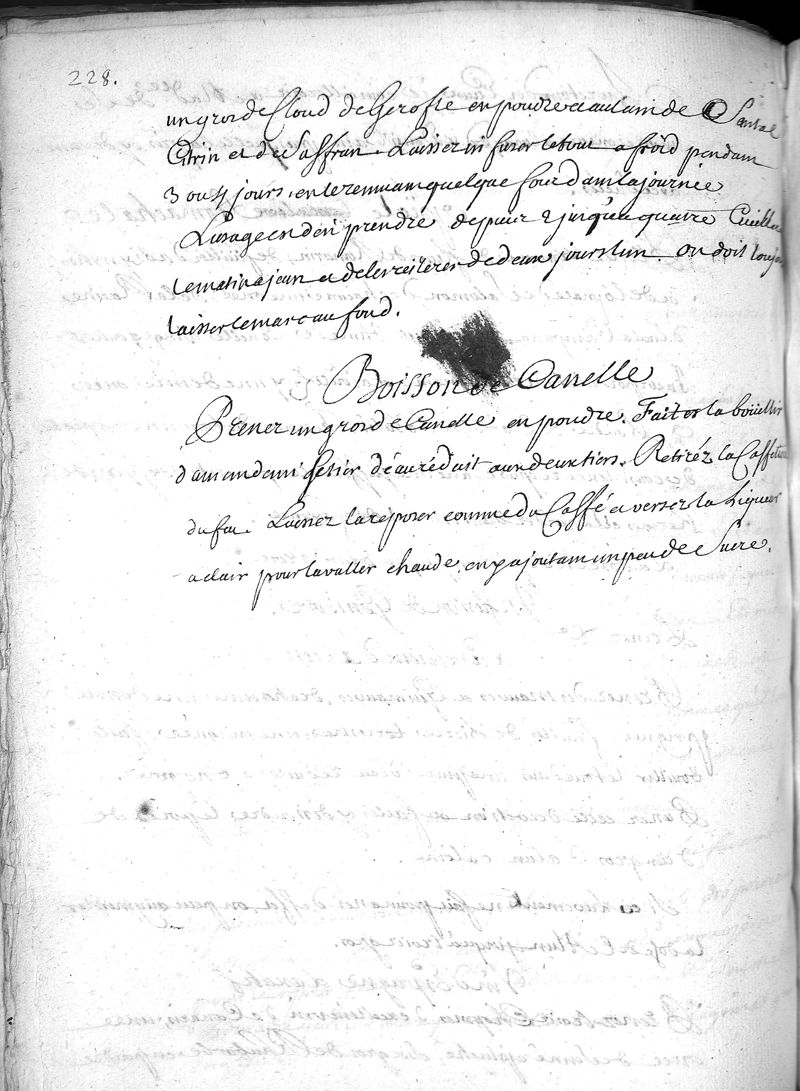 228.
un gros de Cloud de Gerofle en poudre et autant de Santal
Citrin et de Saffran. Laissez infuser le tout a froid pendant
3 ou 4 jours, en le remuant quelque fois dans la journée
L'usage est d'en prendre depuis 2 jusqu'a quatre Cuillées
le matin a jeun et de le reiterer de deux jours l'un. On doit toujours
laisser le marc au fond.
Boisson de Canelle
Prenez un gros de Canelle en poudre. Faites la boüillir
dans un demi setier d'eau réduit aux deux tiers. Retiréz la Caffetiere
du feu. Laissez la reposer comme du Caffé et versez la liqueur
a clair pour l'avaller chaude, en y ajoutant un peu de Sucre.